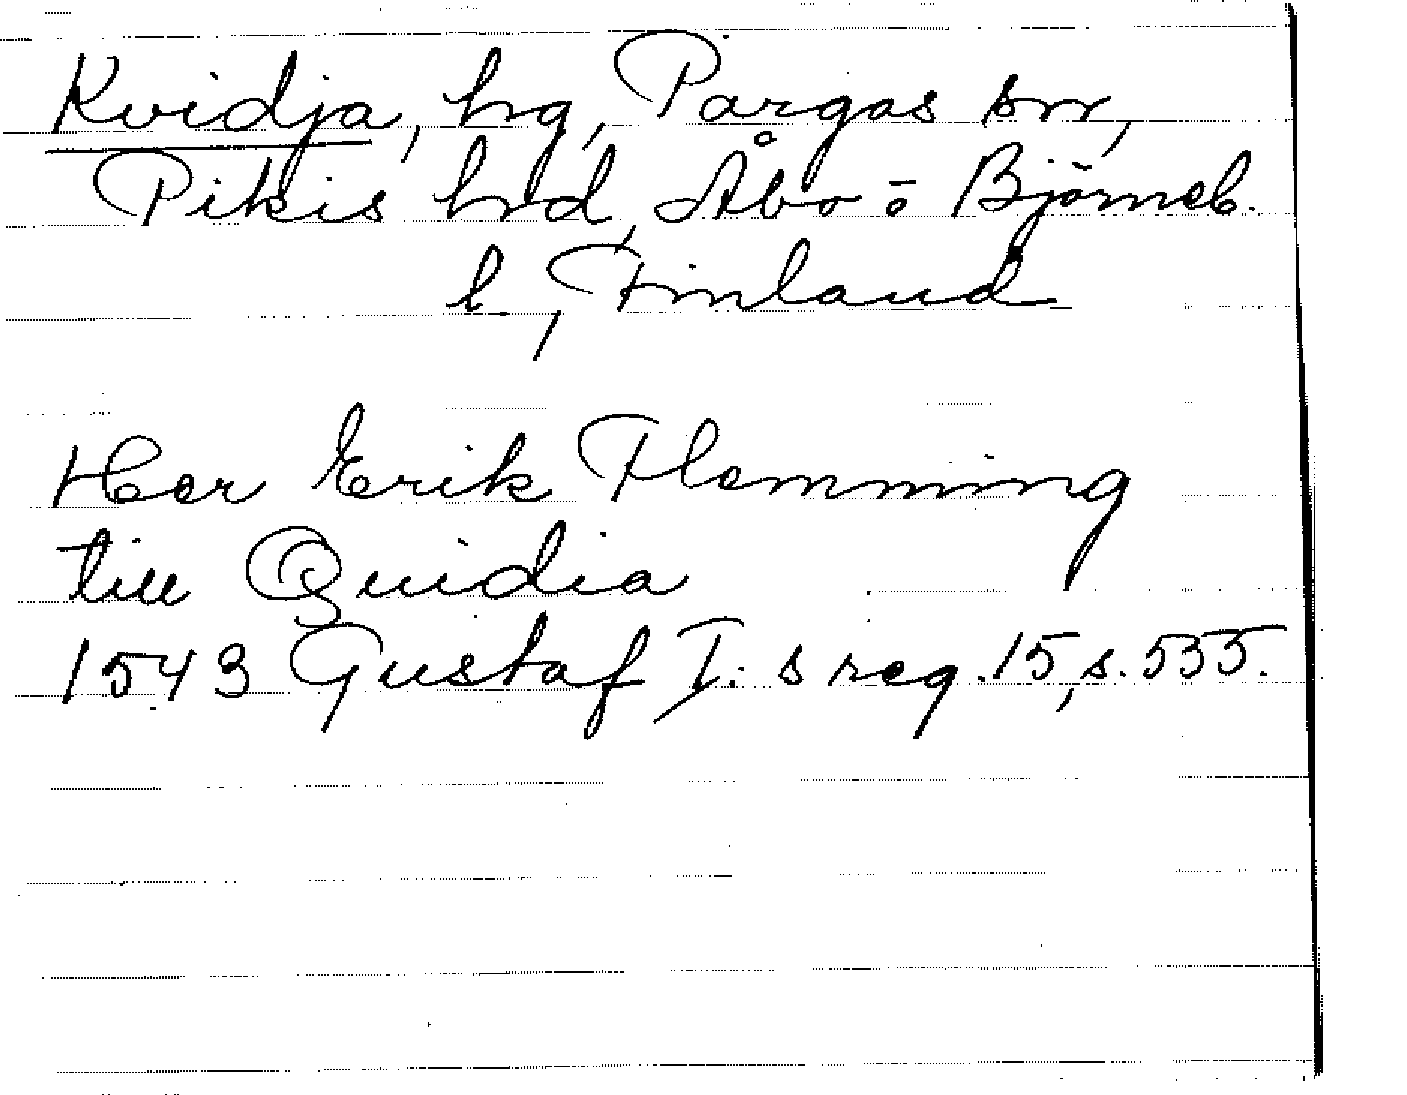 Kvidja, hrg, Pargas sn,
Pikis hrd, Åbo o Björneb.
l., Finland
Her Erik Flemming
till Quidia
1543 Gustaf I:s reg. 15, s. 535.